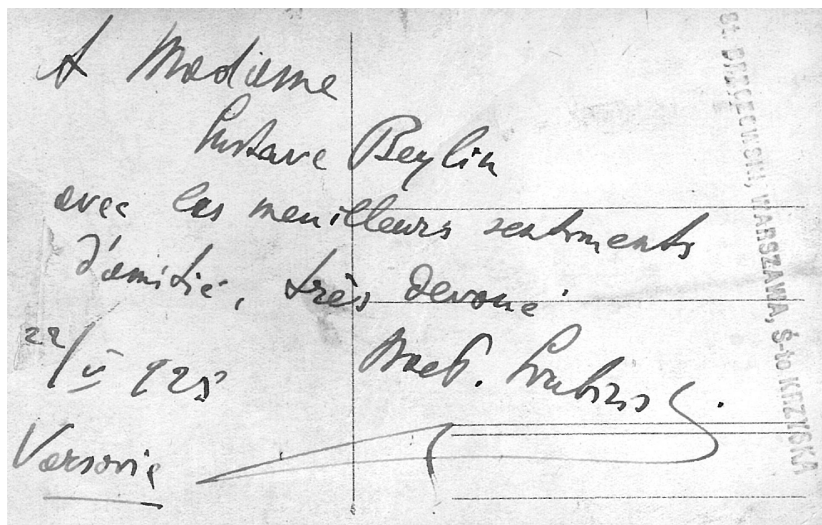 A Madame
Gustave Beylin
avec les meuilleurs sentiments
d'amitié, très devoué
22/V 925
Varsovie
WARSZAWA, Ś-to KRZYSKA